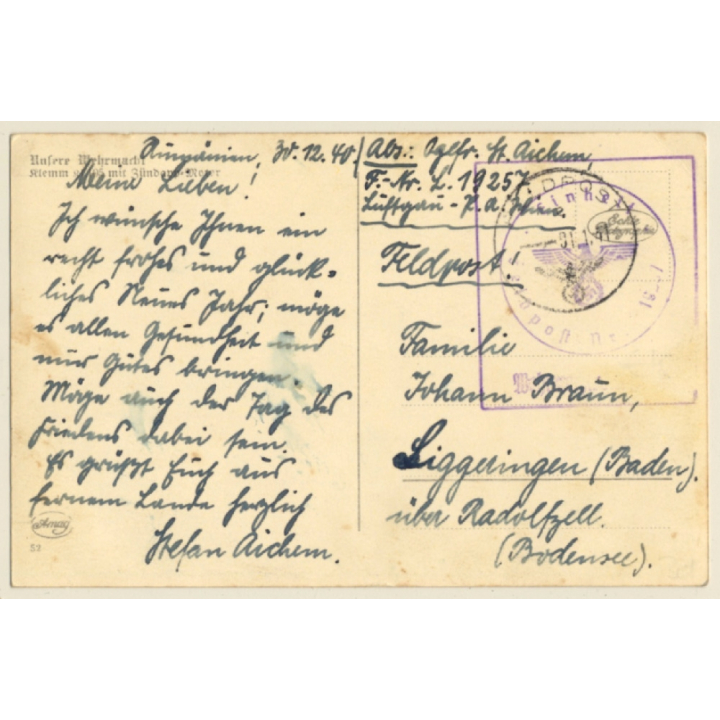 Unsere Wehrmacht
Klemm mit Zündapp-Motor
Rumänien, 30.12.40.
Meine Lieben!
Ich wünsche Ihnen ein
recht frohes und glück-
liches Neues Jahr; möge
es allen Gesundheit und
nur Gutes bringen.
Möge auch der Tag des
Friedens dabei sein.
Es grüßt Euch aus
fernem Lande herzlich
Stefan Aichem.
52
Abs.: Ogefr. St. Aichem,
F.-Nr. L. 19257
Luftgau-P.A. Wien.
Feldpost!
FELDPOST
Familie
Johann Braun,
Liggeringen (Baden).
über Radolfzell.
(Bodensee).